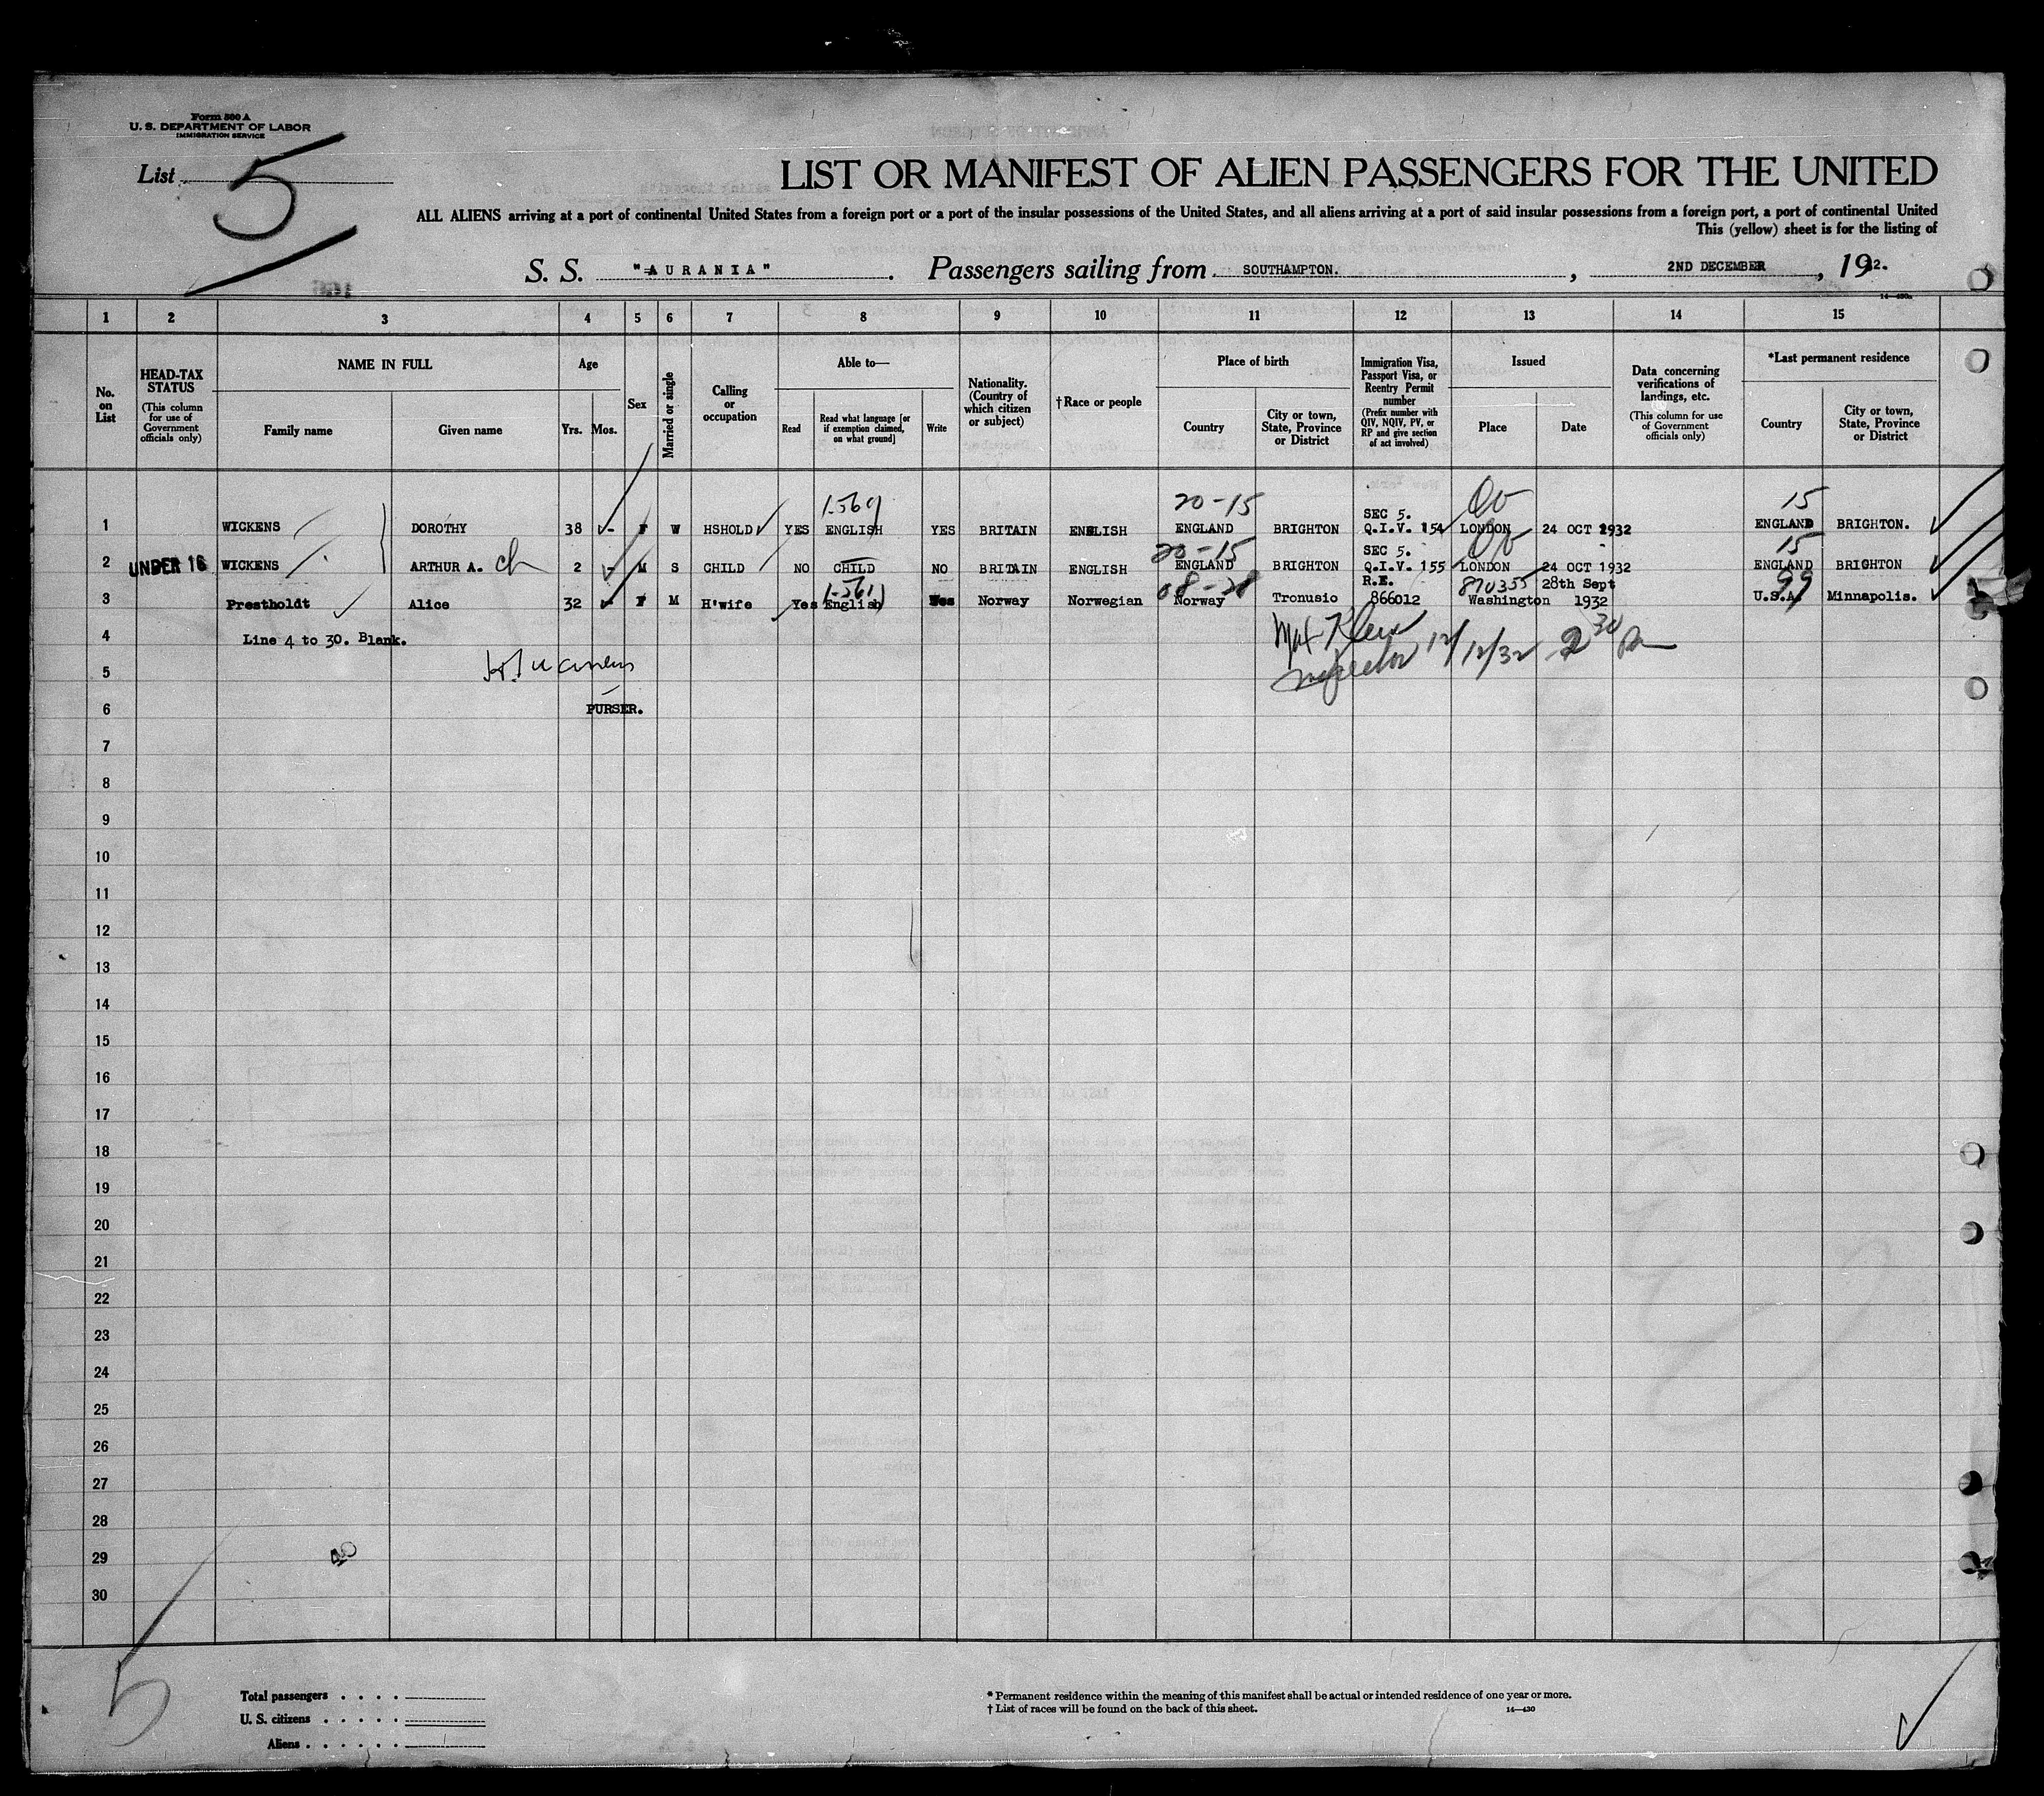 Form 500 A
U. S. DEPARTMENT OF LABOR
IMMIGRATION SERVICE
List 5
LIST OR MANIFEST OF ALIEN PASSENGERS FOR THE UNITED
ALL ALIENS arriving at a port of continental United States from a foreign port or a port of the insular possessions of the United States, and all aliens arriving at a port of said insular possessions from a foreign port, a port of continental United
This (yellow) sheet is for the listing of
S. S. "AURANIA". Passengers sailing from SOUTHAMPTON., 2ND DECEMBER, 1932.
1 2 3 4 5 6 7 8 9 10 11 12 13 14 15
No. on List
HEAD-TAX STATUS
(This column for use of Government officials only)
NAME IN FULL
Family name Given name
Age
Yrs. Mos.
Sex
Married or single
Calling or occupation
Able to—
Read
Read what language [or if exemption claimed, on what ground]
Write
Nationality. (Country of which citizen or subject)
†Race or people
Place of birth
Country
City or town, State, Province or District
Immigration Visa, Passport Visa, or Reentry Permit number
(Prefix number with QIV, NQIV, PV, or RP and give section of act involved)
Issued
Place Date
Data concerning verifications of landings, etc.
(This column for use of Government officials only)
*Last permanent residence
Country
City or town, State, Province or District
20-15 15
SEC 5.
1 WICKENS DOROTHY 38 - F W HSHOLD YES ENGLISH YES BRITAIN ENGLISH ENGLAND BRIGHTON Q.I.V. 154 LONDON 24 OCT 1932 ENGLAND BRIGHTON.
20-15 SEC 5. 15
2 UNDER 16 WICKENS ARTHUR A. ch 2 - M S CHILD NO CHILD NO BRITAIN ENGLISH ENGLAND BRIGHTON Q.I.V. 155 LONDON 24 OCT 1932 ENGLAND BRIGHTON
08-28 R.E. 870355 28th Sept 99
3 Prestholdt Alice 32 - F M H'wife Yes English Yes Norway Norwegian Norway Tronusio 866012 Washington 1932 U.S.A. Minnapolis.
4 Line 4 to 30. Blank.
12/12/32 2 30
Inspector
5
6 PURSER.
7
8
9
10
11
12
13
14
15
16
17
18
19
20
21
22
23
24
25
26
27
28
29
40
30
5
Total passengers
U. S. citizens
Aliens
* Permanent residence within the meaning of this manifest shall be actual or intended residence of one year or more.
† List of races will be found on the back of this sheet.
14—430